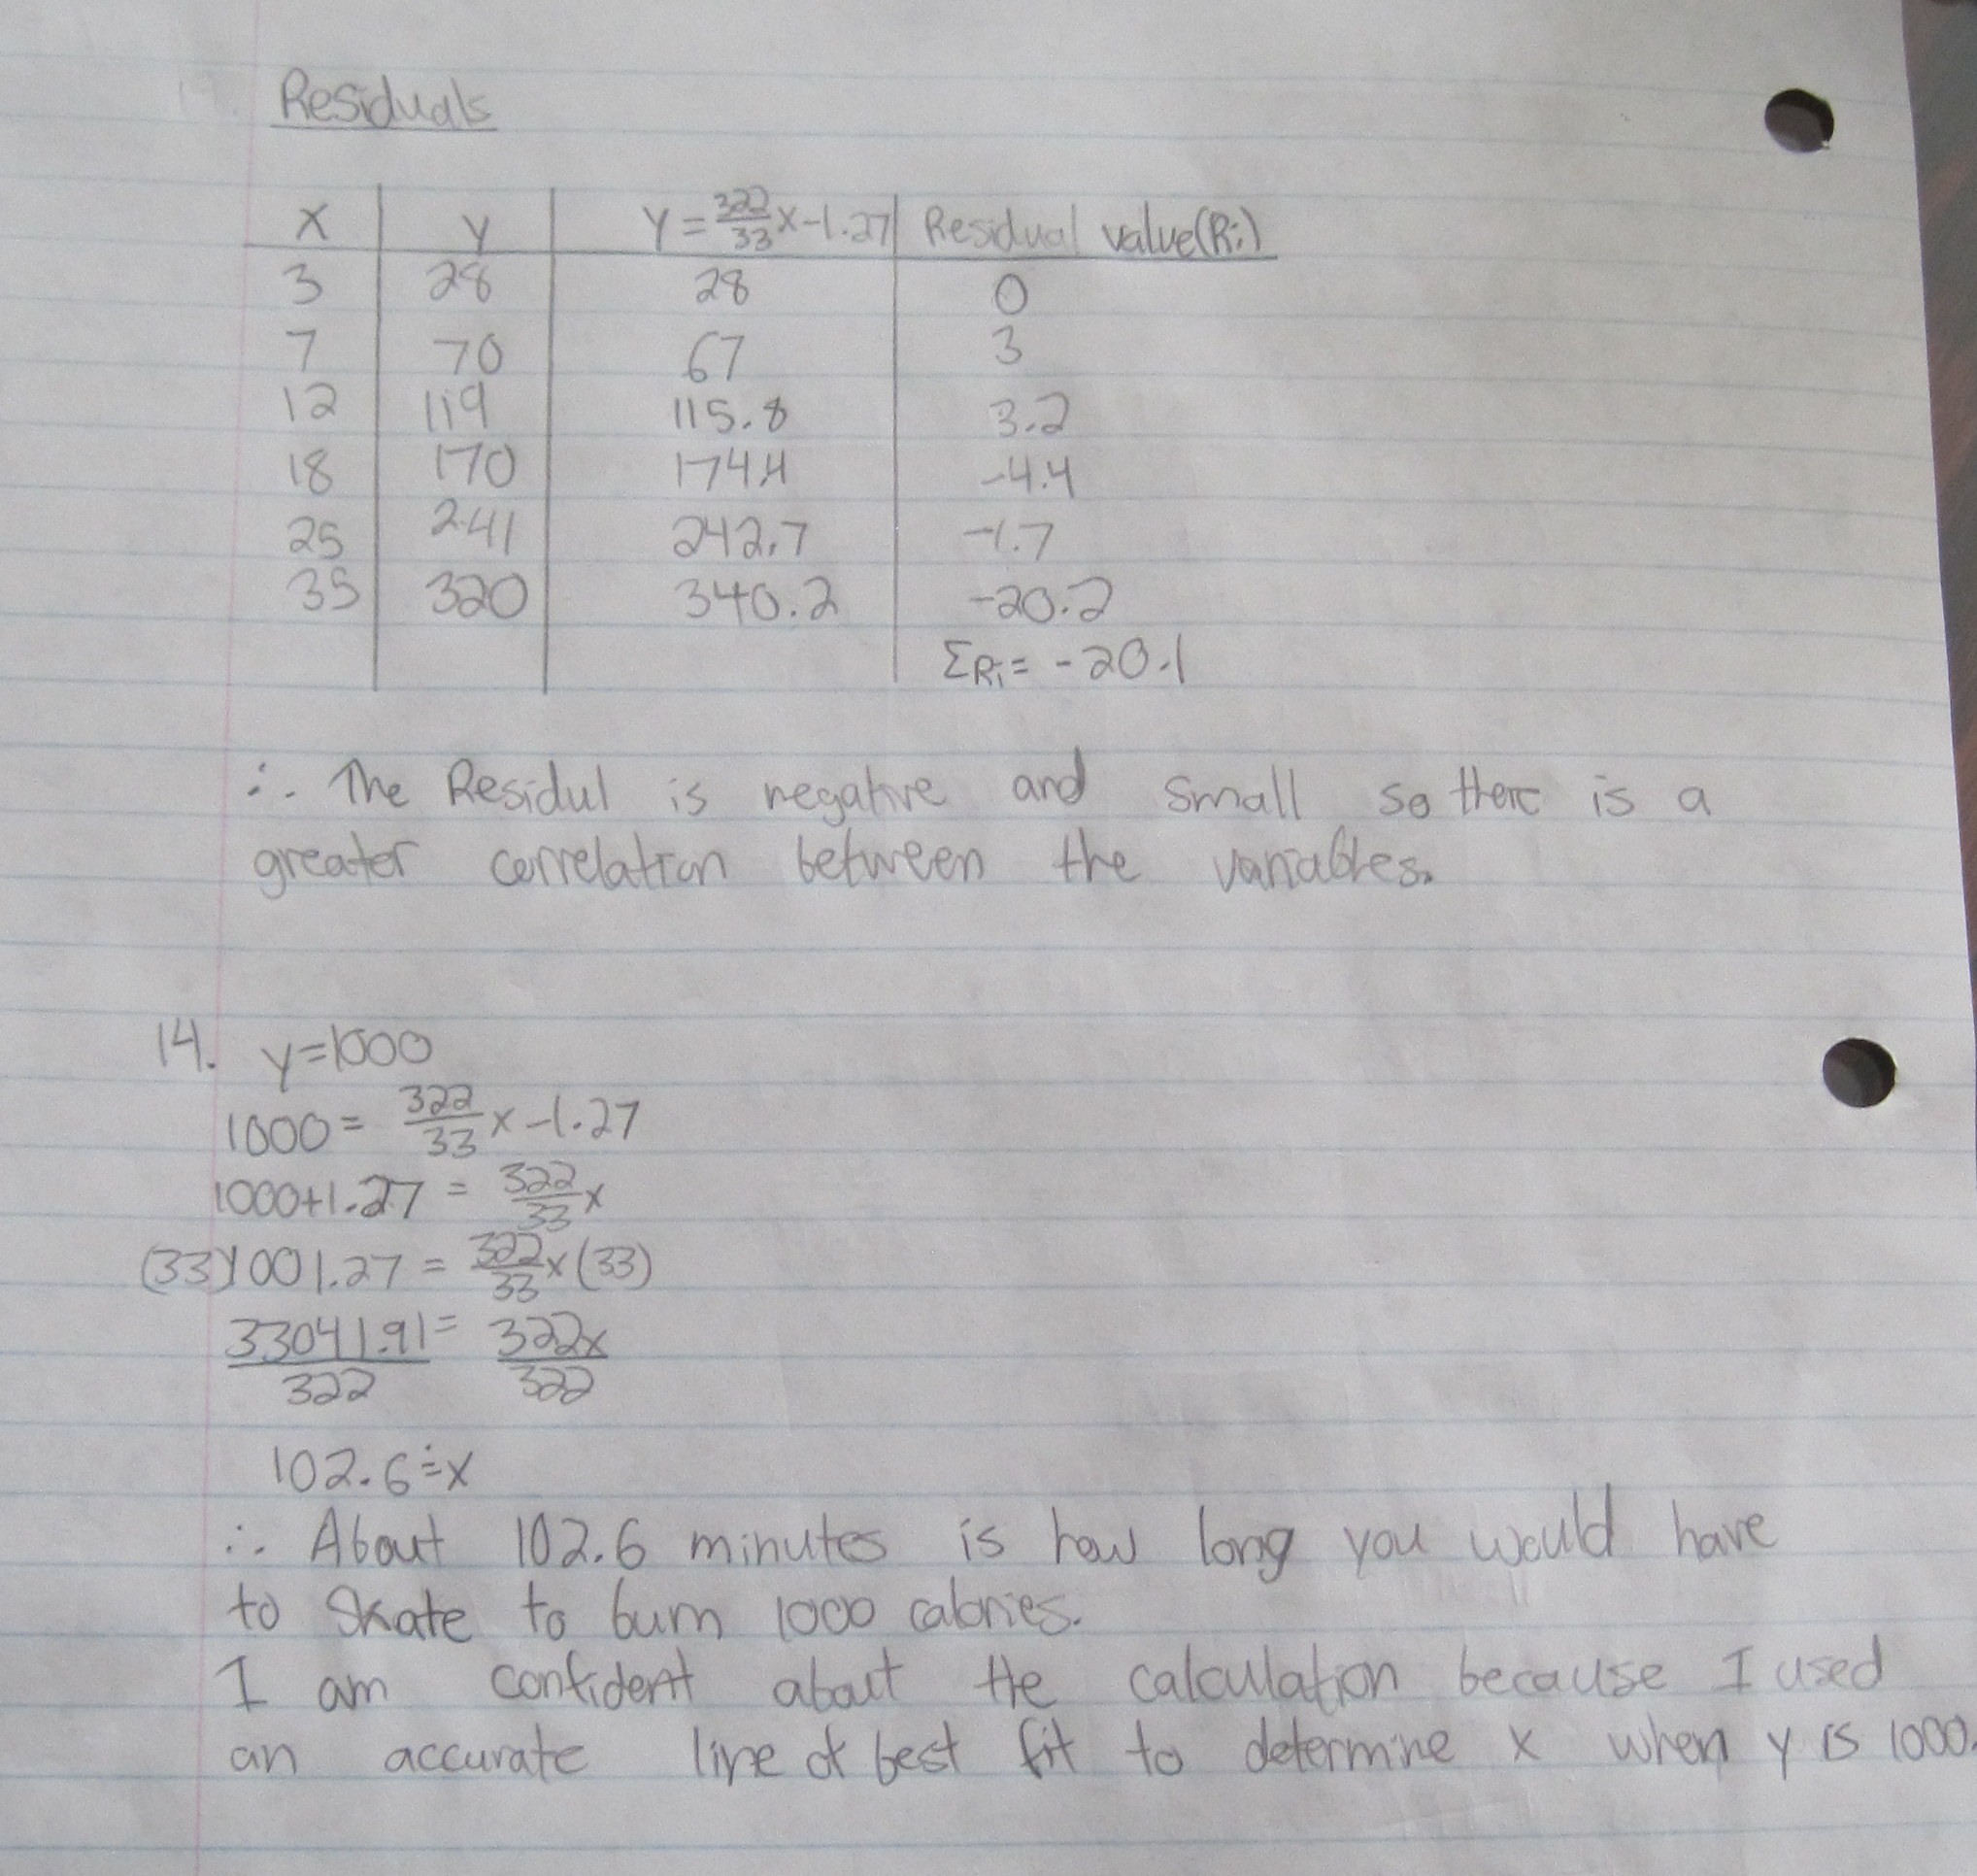 Residuals
x y y = 322/33 x - 1.27 Residual value (Ri)
3 28 28 0
7 70 67 3
12 119 115.8 3.2
18 170 174.4 -4.4
25 241 242.7 -1.7
35 320 340.2 -20.2
ΣRi = -20.1
∴ The Residul is negative and small so there is a
greater correlation between the variables.
14. y=1000
1000 = 322/33 x - 1.27
1000+1.27 = 322/33 x
(33)1001.27 = 322/33 x (33)
33041.91/322 = 322x/322
102.6 ≐ x
∴ About 102.6 minutes is how long you would have
to skate to burn 1000 calories.
I am confident about the calculation because I used
an accurate line of best fit to determine x when y is 1000.